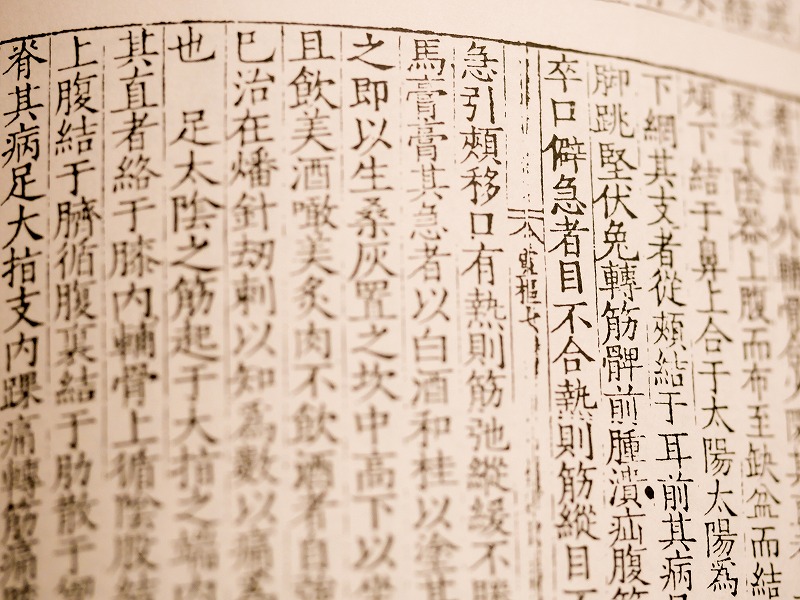 聚于陰器上腹而布至缺盆而結
下結于鼻上合于太陽太陽為
下網其支者從頰結于耳前其病
脚跳堅伏兔轉筋髀前腫㿉疝腹筋
卒口僻急者目不合熱則筋縱目不
急引頰移口有熱則筋弛縱緩不勝
馬膏膏其急者以白酒和桂以塗其
之即以生桑灰置之坎中高下以坐
且飲美酒噉美炙肉不飲酒者自強
巴治在燔針刼刺以知為數以痛為
也 足太陰之筋起于大指之端
其直者絡于膝內輔骨上循陰股結
上腹結于臍循腹裏結于肋散于
脊其病足大指支內踝痛轉筋痛